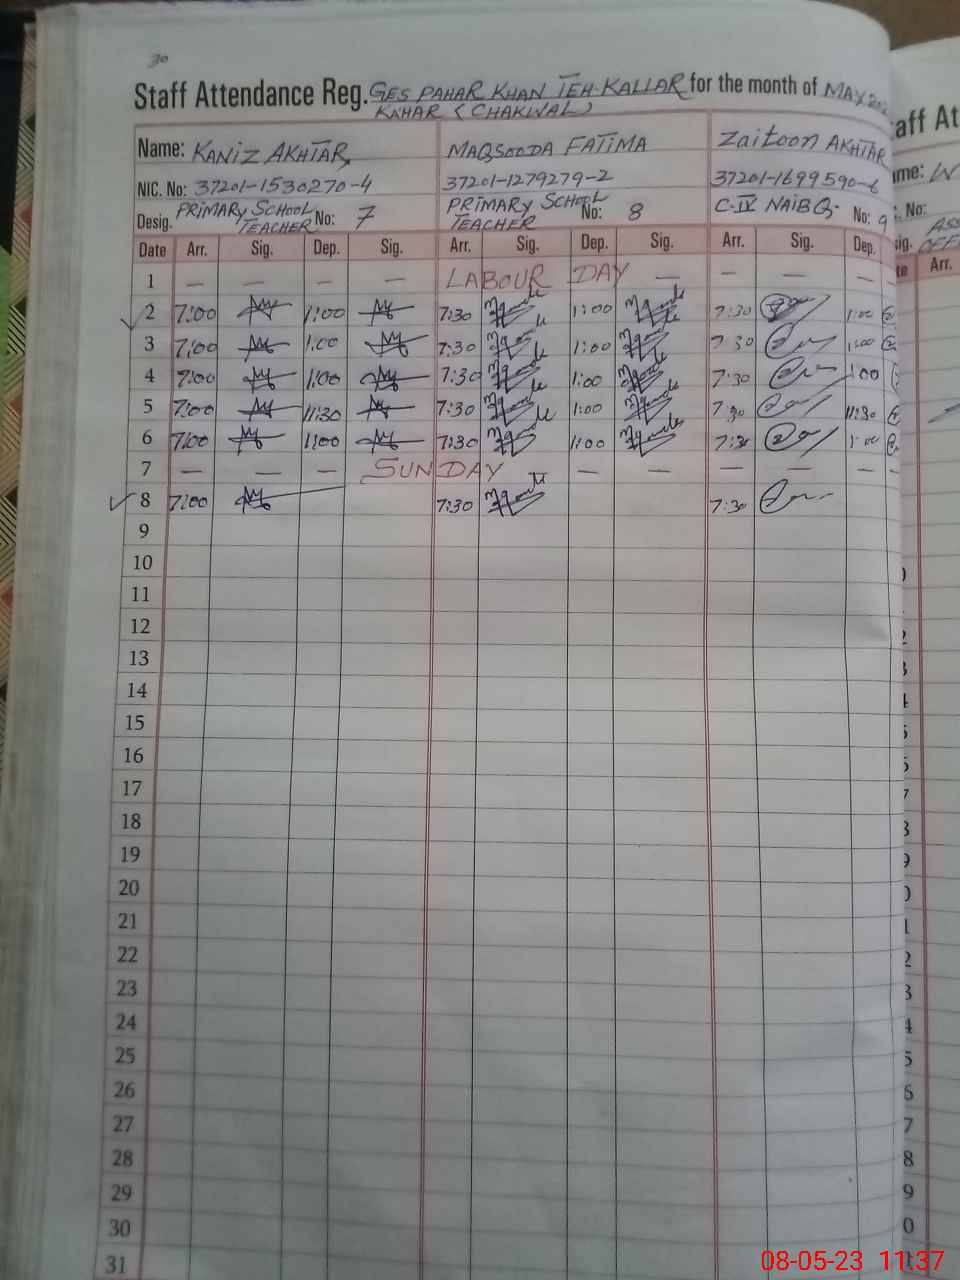 30
Staff Attendance Reg. GES PAHAR KHAN TEH-KALLAR for the month of MAY
KAHAR (CHAKWAL)
Name: KANIZ AKHTAR MAQSOODA FATIMA Zaitoon AKHTAR
NIC. No: 37201-1530270-4 37201-1279279-2 37201-1699590-6
Desig. PRIMARY SCHOOL TEACHER No: 7 PRIMARY SCHOOL TEACHER No: 8 C-IV NAIB Q. No: 9
Date Arr. Sig. Dep. Sig. Arr. Sig. Dep. Sig. Arr. Sig. Dep.
1 — — — — LABOUR DAY — — — —
2 7:00 1:00 7:30 1:00 7:30 1:00
3 7:00 1:00 7:30 1:00 7:30 1:00
4 7:00 1:00 7:30 1:00 7:30 1:00
5 7:00 11:30 7:30 1:00 7:30 11:30
6 7:00 1:00 7:30 1:00 7:30 1:00
7 — — — SUNDAY — — — — — —
8 7:00 7:30 7:30
9
10
11
12
13
14
15
16
17
18
19
20
21
22
23
24
25
26
27
28
29
30
31
aff At
me:
No:
sig.
Arr.
08-05-23 11:37